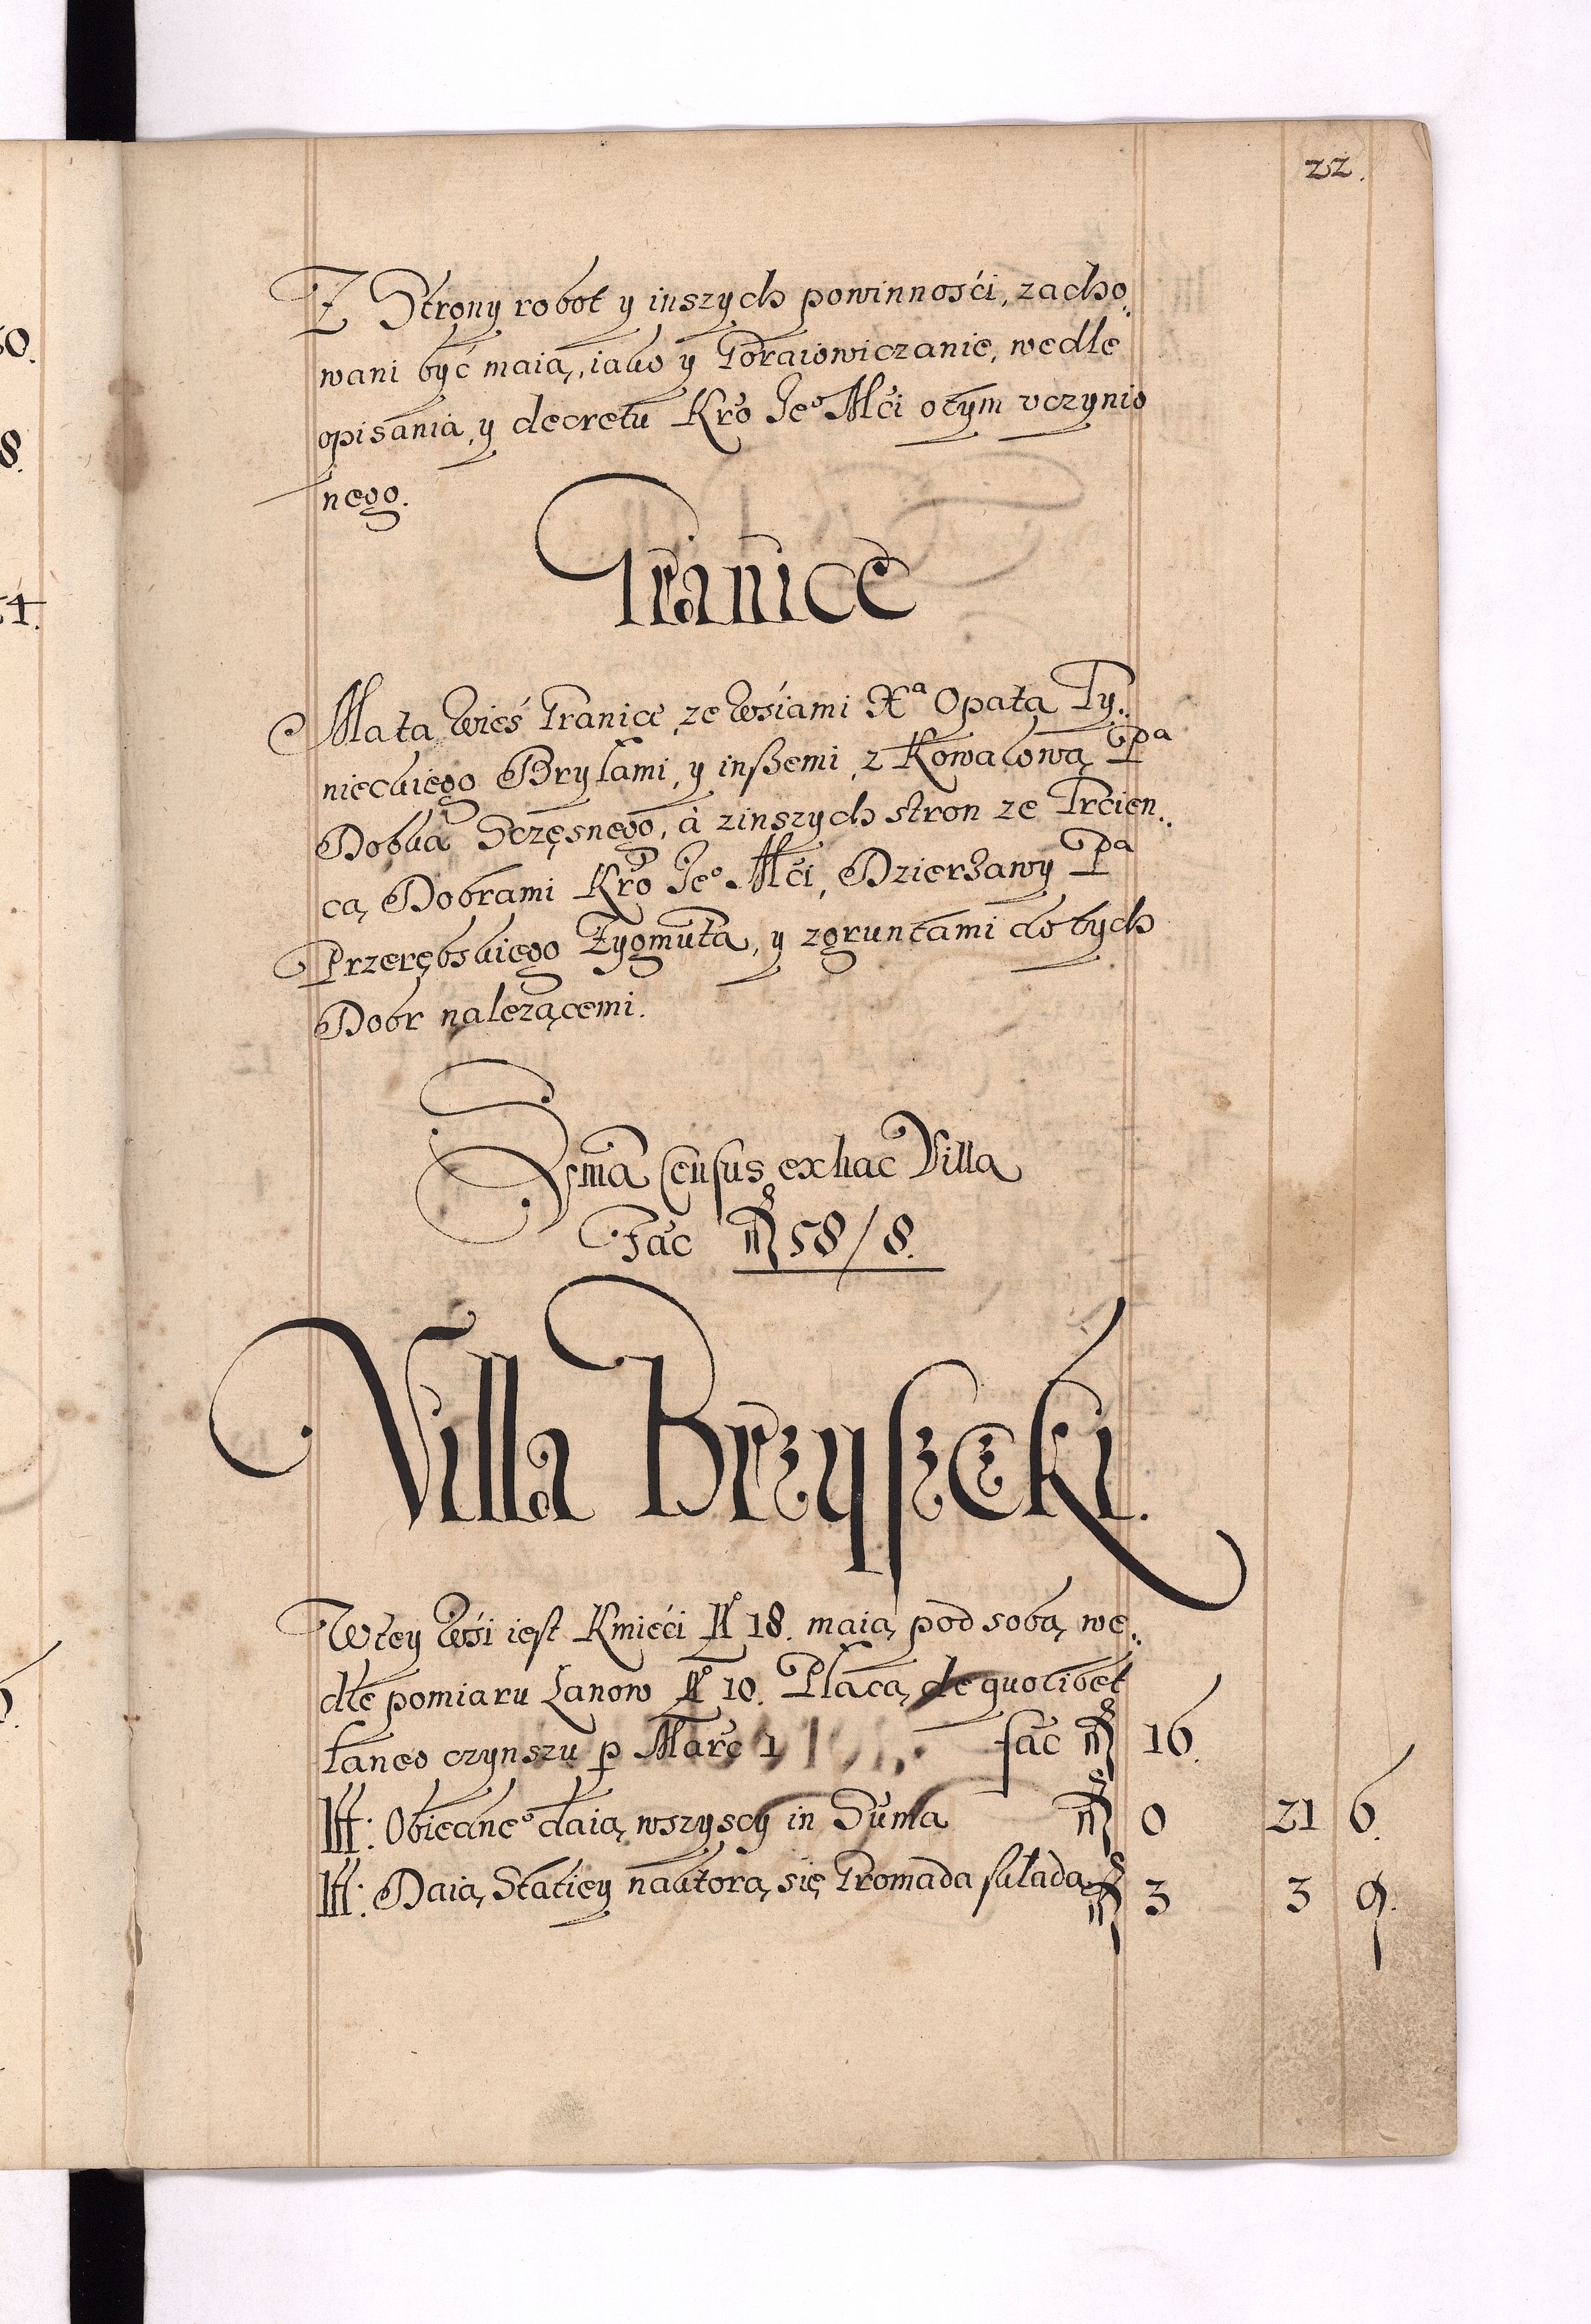 22.
Z Strony robot y inszych powinnośći, zacho„
wani być maią, iako y Goraiowiczanie, wedle
opisania, y decretu Kro Jeº Mći otym vczynio
nego.
Granice
Ma ta Wieś Granice, ze Wśiami Xª Opata Ty„
nieckiego Brylami, y inßemi, z Kowalową Pª
Bobka Sczęsnego, à zinszych stron ze Trcien„
cą, Dobrami Kro Jeº Mći, Dzierżawy Pª
Przerębskiego Zygmuta, y zgruntami do tych
Dobr nalezącemi.
Sma Census ex hac Villa
Fac 58/8.
Villa Brzysczki.
Wtey Wśi iest Kmieći Nº 18. maią pod sobą, we„
dle pomiaru Lanow Nº 10. Płacą, de quolibet
laneo czynszu p Marc 1 fac 16.
Itt: Obiedneº daią wszyscy in Suma 0 21 6.
Itt: Daią Statiey naktorą się Gromada składa 3 3 9.
50.
8.
54.